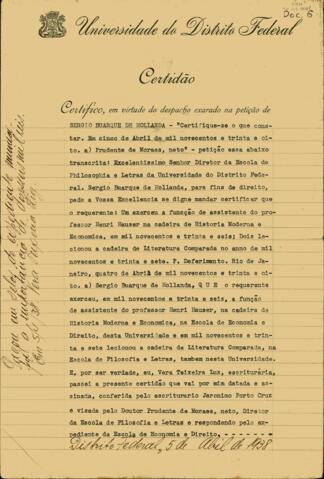 Doc. 6
Universidade do Distrito Federal
Certidão
Certifico, em virtude do despacho exarado na petição de
SERGIO BUARQUE DE HOLLANDA - "Certifique-se o que cons-
tar. Em cinco de Abril de mil novecentos e trinta e
oito. a) Prudente de Moraes, neto" - petição essa abaixo
transcrita: Excelentissimo Senhor Diretor da Escola de
Philosophia e Letras da Universidade do Distrito Fede-
ral. Sergio Buarque de Hollanda, para fins de direito,
pede a Vossa Excellencia se digne mandar certificar que
o requerente: Um exerceu a função de assistente do professor
Henri Hauser na cadeira de Historia Moderna e
Economica, em mil novecentos e trinta e seis; Dois le-
cionou a cadeira de Literatura Comparada no anno de mil
novecentos e trinta e sete. P. Deferimento. Rio de Ja-
neiro, quatro de Abril de mil novecentos e trinta e oi-
to a) Sergio Buarque de Hollanda, Q U E o requerente
exerceu, em mil novecentos e trinta e seis, a função
de assistente do professor Henri Hauser, na cadeira de
Historia Moderna e Economica, na Escola de Economia e
Direito, desta Universidade e em mil novecentos e trin-
ta e sete lecionou a cadeira de Literatura Comparada, na
Escola de Filosofia e Letras, tambem nesta Universidade.
E, por ser verdade, eu, Vera Teixeira Luz, escriturária,
passei a presente certidão que vai por mim datada e as-
sinada, conferida pelo escriturario Jeronimo Porto Cruz
e visada pelo Doutor Prudente de Moraes, neto, Diretor
da Escola de Filosofia e Letras e respondendo pelo ex-
pediente da Escola de Economia e Direito.
Distrito Federal, 5 de Abril de 1938